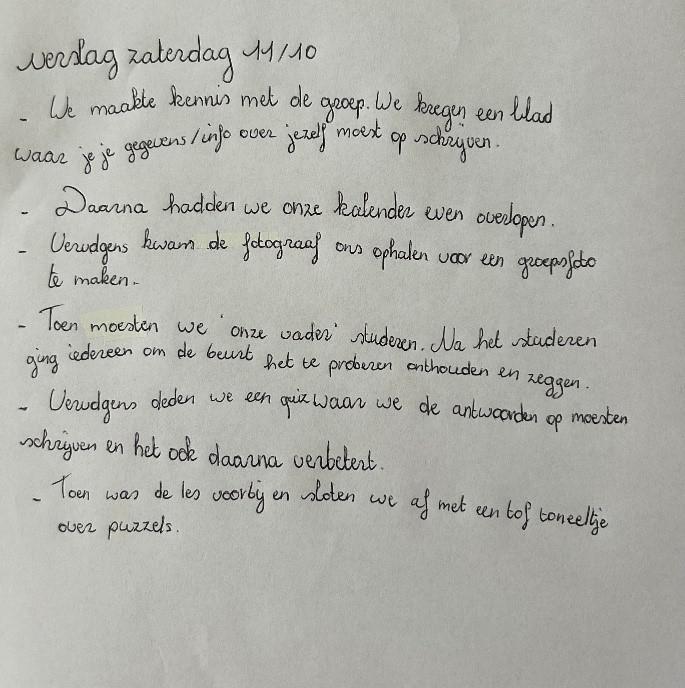 verslag zaterdag 11/10
- We maakte kennis met de groep. We kregen een blad
waar je je gegevens/info over jezelf moest op schrijven.
- Daarna hadden we onze kalender even overlopen.
- Vervolgens kwam de fotograaf ons ophalen voor een groepsfoto
te maken.
- Toen moesten we 'onze vader' studeren. Na het studeren
ging iedereen om de beurt het te proberen onthouden en zeggen.
- Vervolgens deden we een quiz waar we de antwoorden op moesten
schrijven en het ook daarna verbetert.
- Toen was de les voorbij en sloten we af met een tof toneeltje
over puzzels.